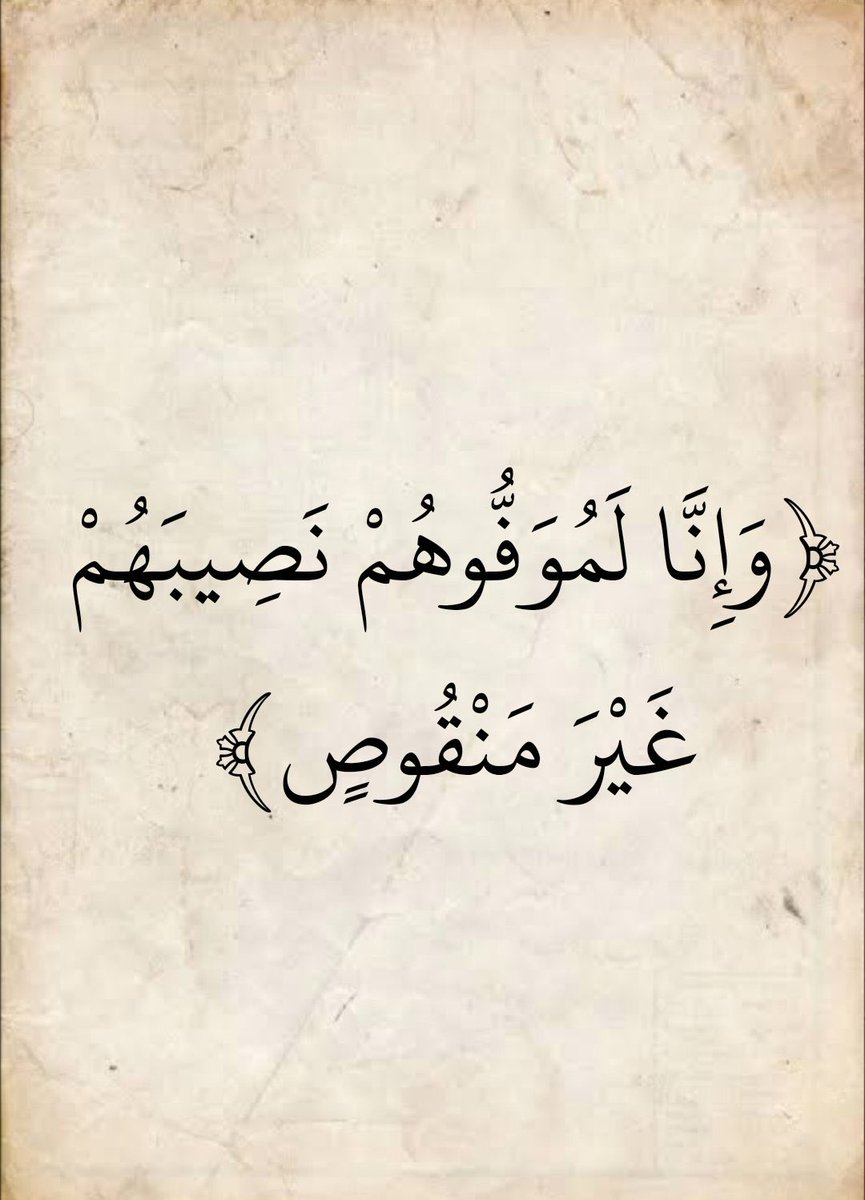 ﴿وَإِنَّا لَمُوَفُّوهُمْ نَصِيبَهُمْ
غَيْرَ مَنْقُوصٍ﴾